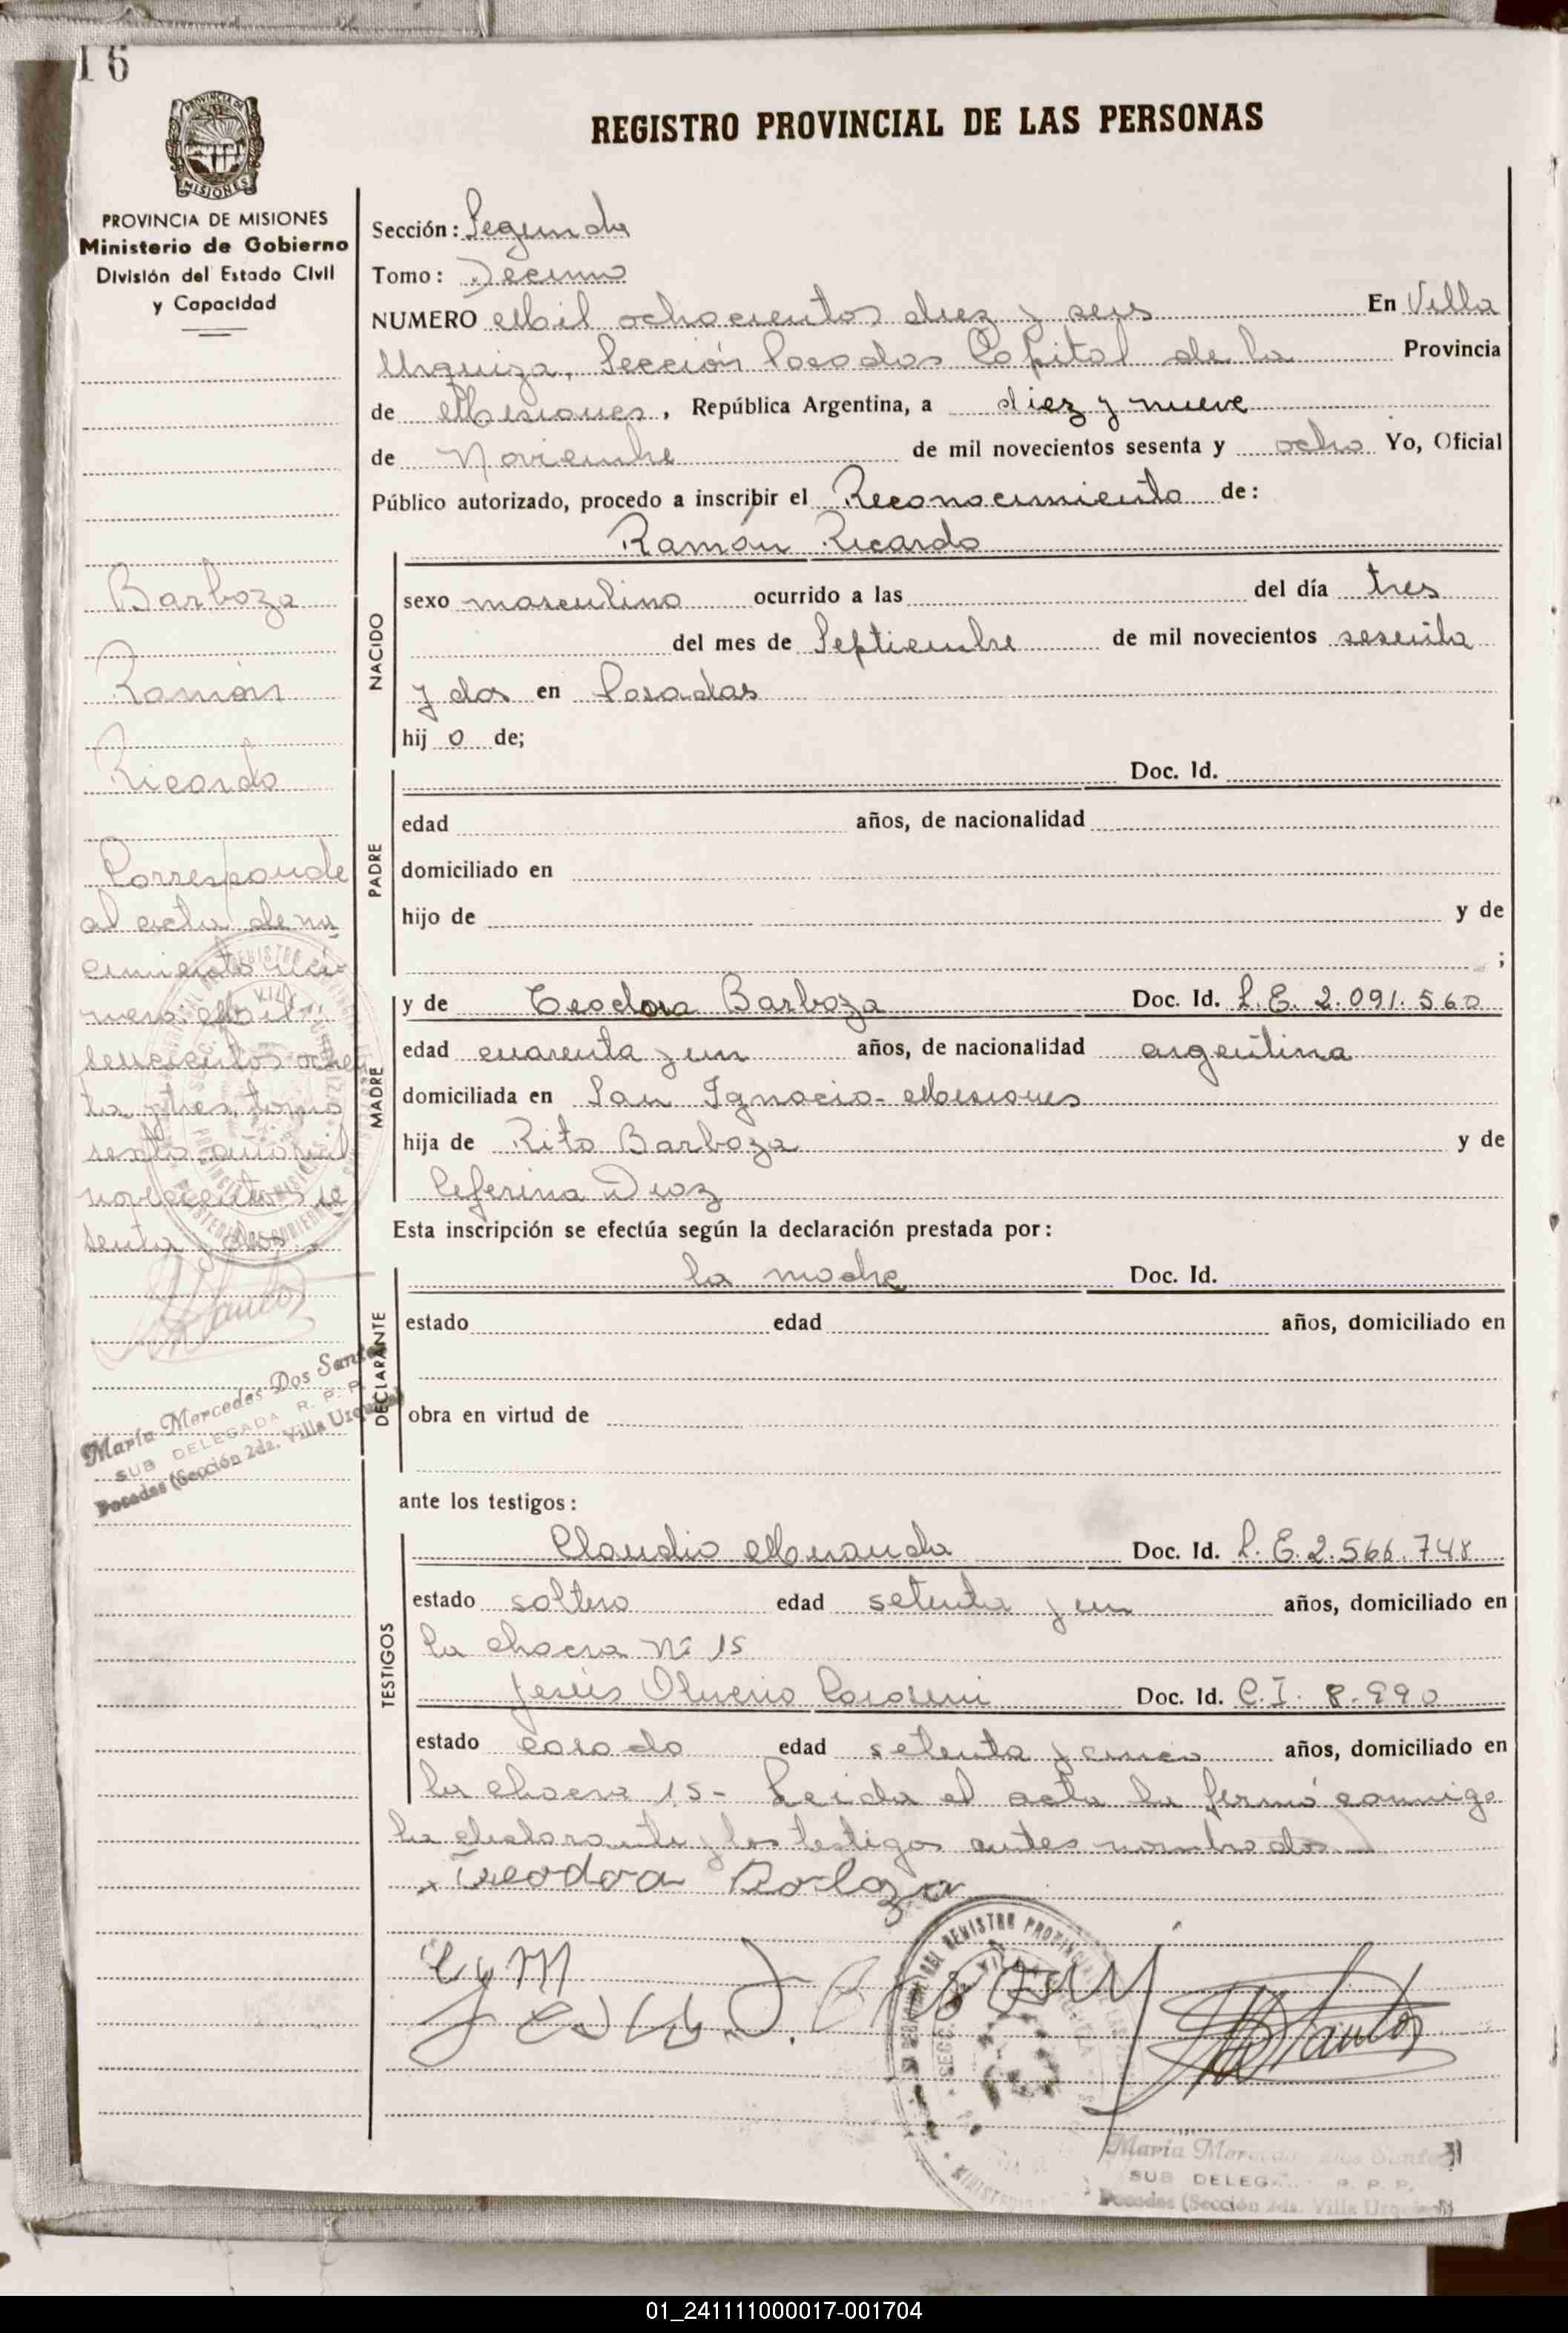 16
PROVINCIA DE MISIONES
MISIONES
PROVINCIA DE MISIONES
Ministerio de Gobierno
División del Estado Civil
y Capacidad
REGISTRO PROVINCIAL DE LAS PERSONAS
Sección: Segunda
Tomo: Decimo
NUMERO Mil ochocientos diez y seis En Villa
Urquiza, Sección Posadas Capital de la Provincia
de Misiones, República Argentina, a diez y nueve
de Noviembre de mil novecientos sesenta y ocho Yo, Oficial
Público autorizado, procedo a inscribir el Reconocimiento de:
Ramón Ricardo
NACIDO
sexo masculino ocurrido a las del día tres
del mes de Septiembre de mil novecientos sesenta
y dos en Posadas
hij o de;
PADRE
Doc. Id.
edad años, de nacionalidad
domiciliado en
hijo de y de
;
MADRE
y de Teodora Barboza Doc. Id. L.E. 2.091.560
edad cuarenta y un años, de nacionalidad argentina
domiciliada en San Ignacio - Misiones
hija de Rito Barboza y de
Ceferina Diaz
Esta inscripción se efectúa según la declaración prestada por:
DECLARANTE
la madre Doc. Id.
estado edad años, domiciliado en
obra en virtud de
ante los testigos:
TESTIGOS
Claudio Miranda Doc. Id. L.E. 2.566.748
estado soltero edad setenta y un años, domiciliado en
la chacra Nº 15
Jesús Doc. Id. C.I. 8.990
estado casado edad setenta y cinco años, domiciliado en
la chacra 15 - Leida el acta la firmó conmigo
la declarante y los testigos antes nombrados
x Teodora Barboza
Barboza
Ramón
Ricardo
Corresponde
al acta de na
cimiento nú
mero Mil
seiscientos ochen
ta y tres, tomo
sexto, año mil
novecientos se
senta y dos.
María Mercedes Dos Santos
SUB DELEGADA R. P. P.
Posadas (Sección 2da. Villa Urquiza)
María Mercedes Dos Santos
SUB DELEGADA R. P. P.
Posadas (Sección 2da. Villa Urquiza)
01_241111000017-001704